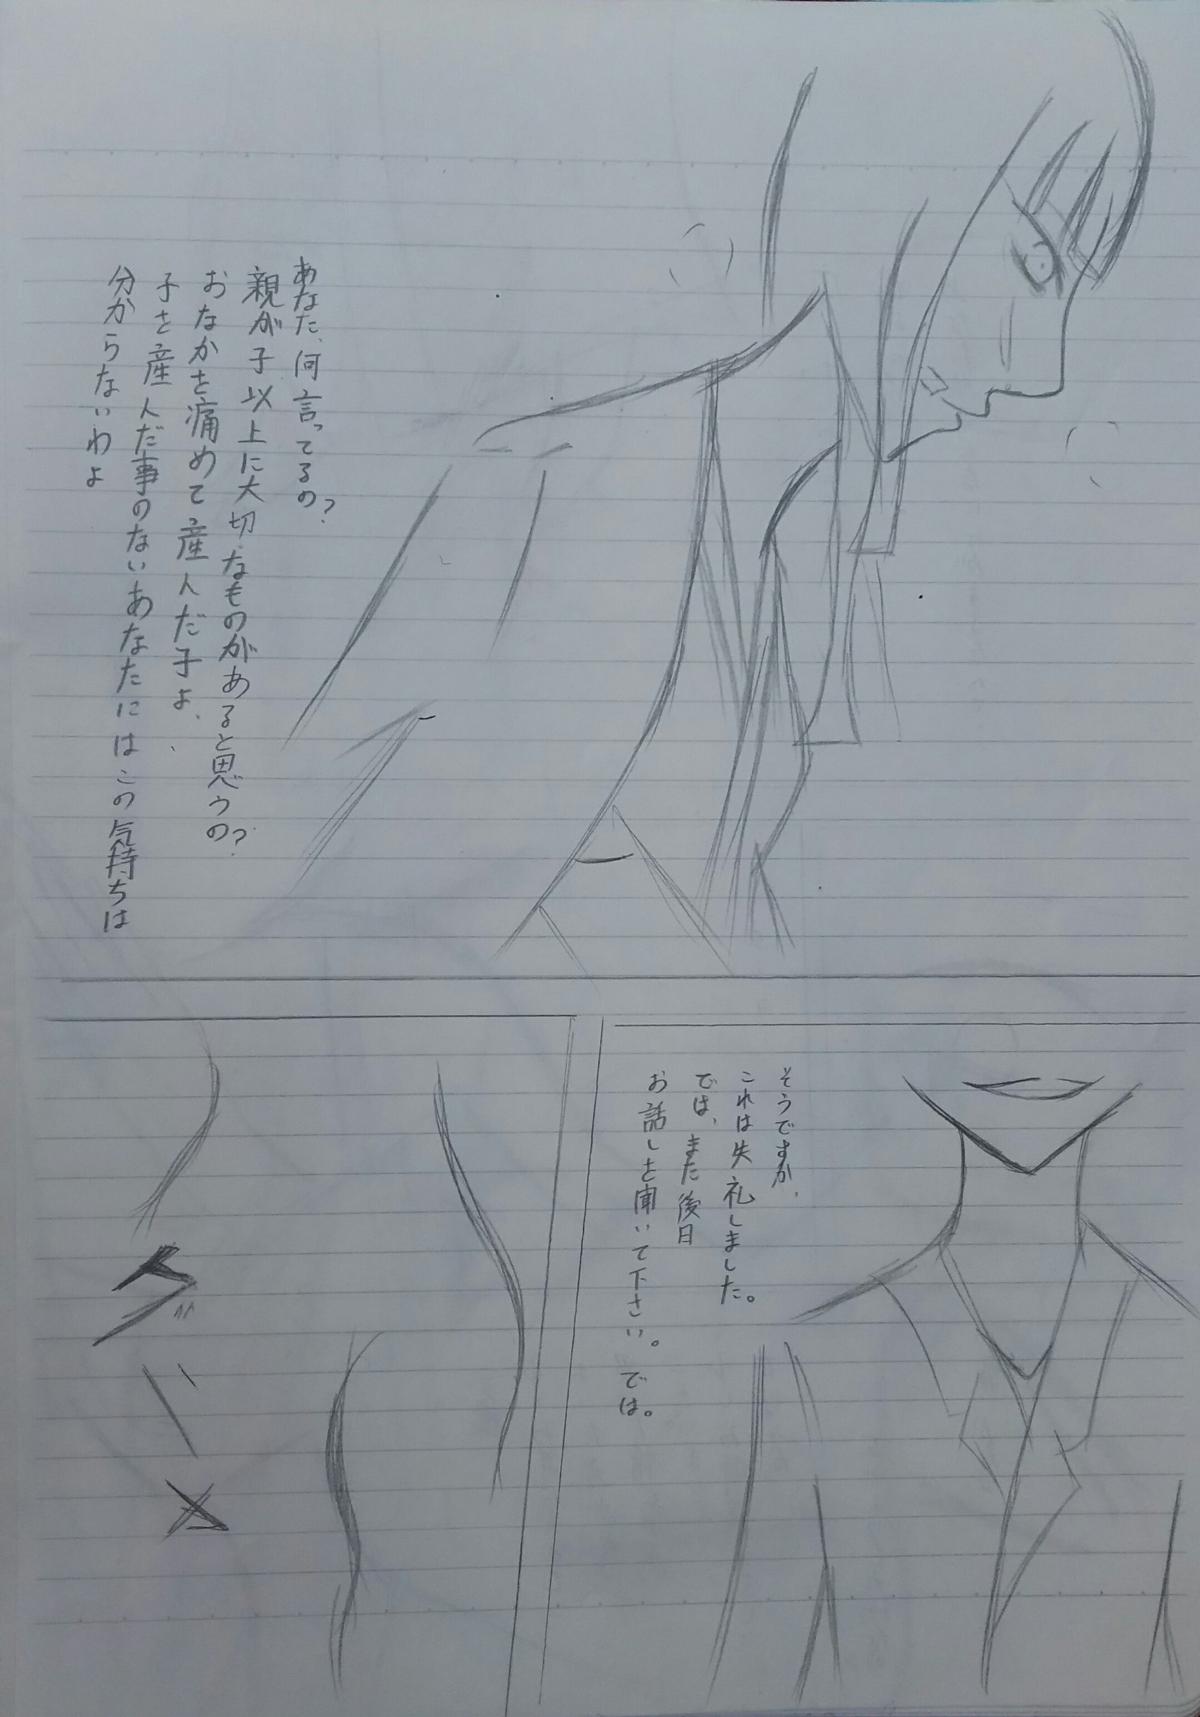 あなた、何言ってるの?
親が子以上に大切なものがあると思うの?
おなかを痛めて産んだ子よ、
子を産んだ事のないあなたにはこの気持ちは
分からないわよ
そうですか、
これは失礼しました。
では、また後日
お話しを聞いて下さい。では。